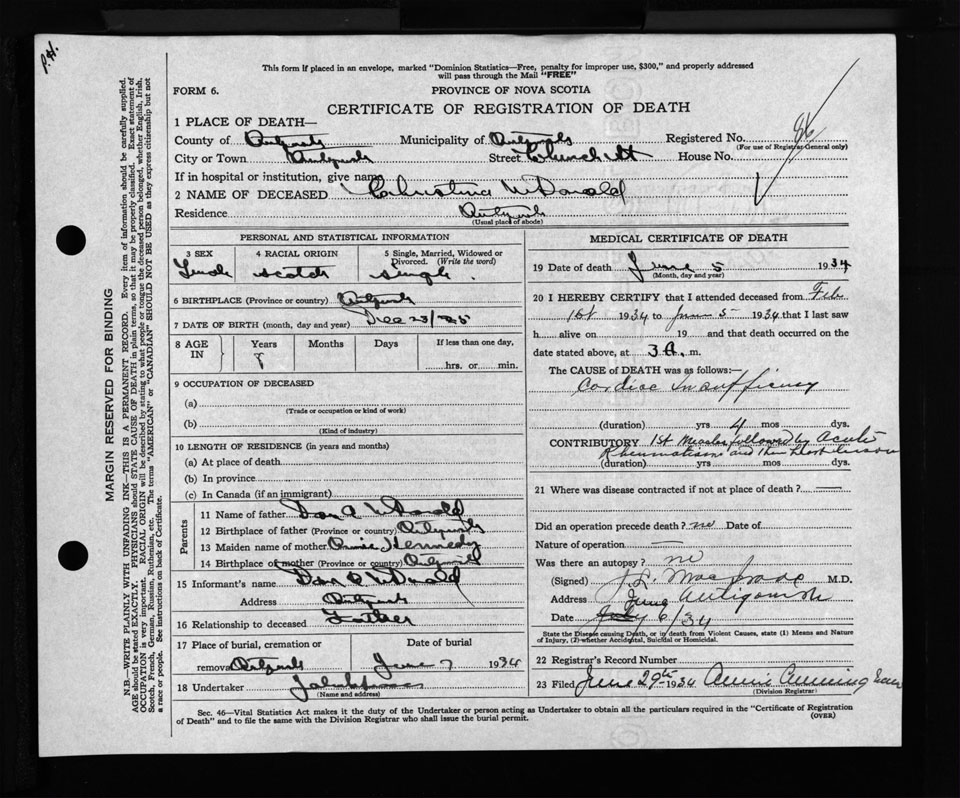 P.H.
This form if placed in an envelope, marked "Dominion Statistics—Free, penalty for improper use, $300," and properly addressed
will pass through the Mail "FREE"
FORM 6.
PROVINCE OF NOVA SCOTIA
CERTIFICATE OF REGISTRATION OF DEATH
1 PLACE OF DEATH—
County of Antigonish Municipality of Antigonish Registered No. 86
(For use of Registrar-General only)
City or Town Antigonish Street Church St House No.
If in hospital or institution, give name
2 NAME OF DECEASED Christina McDonald
Residence Antigonish
(Usual place of abode)
PERSONAL AND STATISTICAL INFORMATION
3 SEX 4 RACIAL ORIGIN 5 Single, Married, Widowed or Divorced. (Write the word)
Female Scotch Single
6 BIRTHPLACE (Province or country) Antigonish
7 DATE OF BIRTH (month, day and year) Dec 23/25
8 AGE IN Years Months Days If less than one day,
8 hrs. or min.
9 OCCUPATION OF DECEASED
(a)
(Trade or occupation or kind of work)
(b)
(Kind of industry)
10 LENGTH OF RESIDENCE (in years and months)
(a) At place of death
(b) In province
(c) In Canada (if an immigrant)
Parents
11 Name of father Dan A McDonald
12 Birthplace of father (Province or country) Antigonish
13 Maiden name of mother Kennedy
14 Birthplace of mother (Province or country) Antigonish
15 Informant's name Dan A McDonald
Address Antigonish
16 Relationship to deceased Father
17 Place of burial, cremation or Date of burial
removal Antigonish June 7 1934
18 Undertaker
(Name and address)
MEDICAL CERTIFICATE OF DEATH
19 Date of death June 5 1934
(Month, day and year)
20 I HEREBY CERTIFY that I attended deceased from Feb
1st 1934 to June 5 1934 that I last saw
h alive on 19 and that death occurred on
date stated above, at 3 A. m.
The CAUSE of DEATH was as follows:—
Cardiac Insufficiency
(duration) yrs 4 mos dys.
CONTRIBUTORY 1st Measles followed by Acute
Rheumatism and then
(duration) yrs mos dys.
21 Where was disease contracted if not at place of death?
Did an operation precede death? no Date of
Nature of operation
Was there an autopsy? no
(Signed) M.D.
Address Antigonish
June
Date July 6/34
State the Disease causing Death, or in death from Violent Causes, state (1) Means and Nature
of Injury, (2) whether Accidental, Suicidal or Homicidal.
22 Registrar's Record Number
23 Filed June 29th 1934 Annie Cunning
(Division Registrar)
Sec. 46—Vital Statistics Act makes it the duty of the Undertaker or person acting as Undertaker to obtain all the particulars required in the "Certificate of Registration
of Death" and to file the same with the Division Registrar who shall issue the burial permit.
(OVER)
MARGIN RESERVED FOR BINDING
N.B.—WRITE PLAINLY WITH UNFADING INK—THIS IS A PERMANENT RECORD. Every item of information should be carefully supplied.
AGE should be stated EXACTLY. PHYSICIANS should STATE CAUSE OF DEATH in plain terms, so that it may be properly classified. Exact statement of
OCCUPATION is very important. RACIAL ORIGIN will be described by stating to what people or tongue the deceased person belonged, whether English, Irish,
Scotch, French, German, Russian, Ruthenian, etc. The terms "AMERICAN" or "CANADIAN" SHOULD NOT BE USED as they express citizenship but not
a race or people. See instructions on back of Certificate.